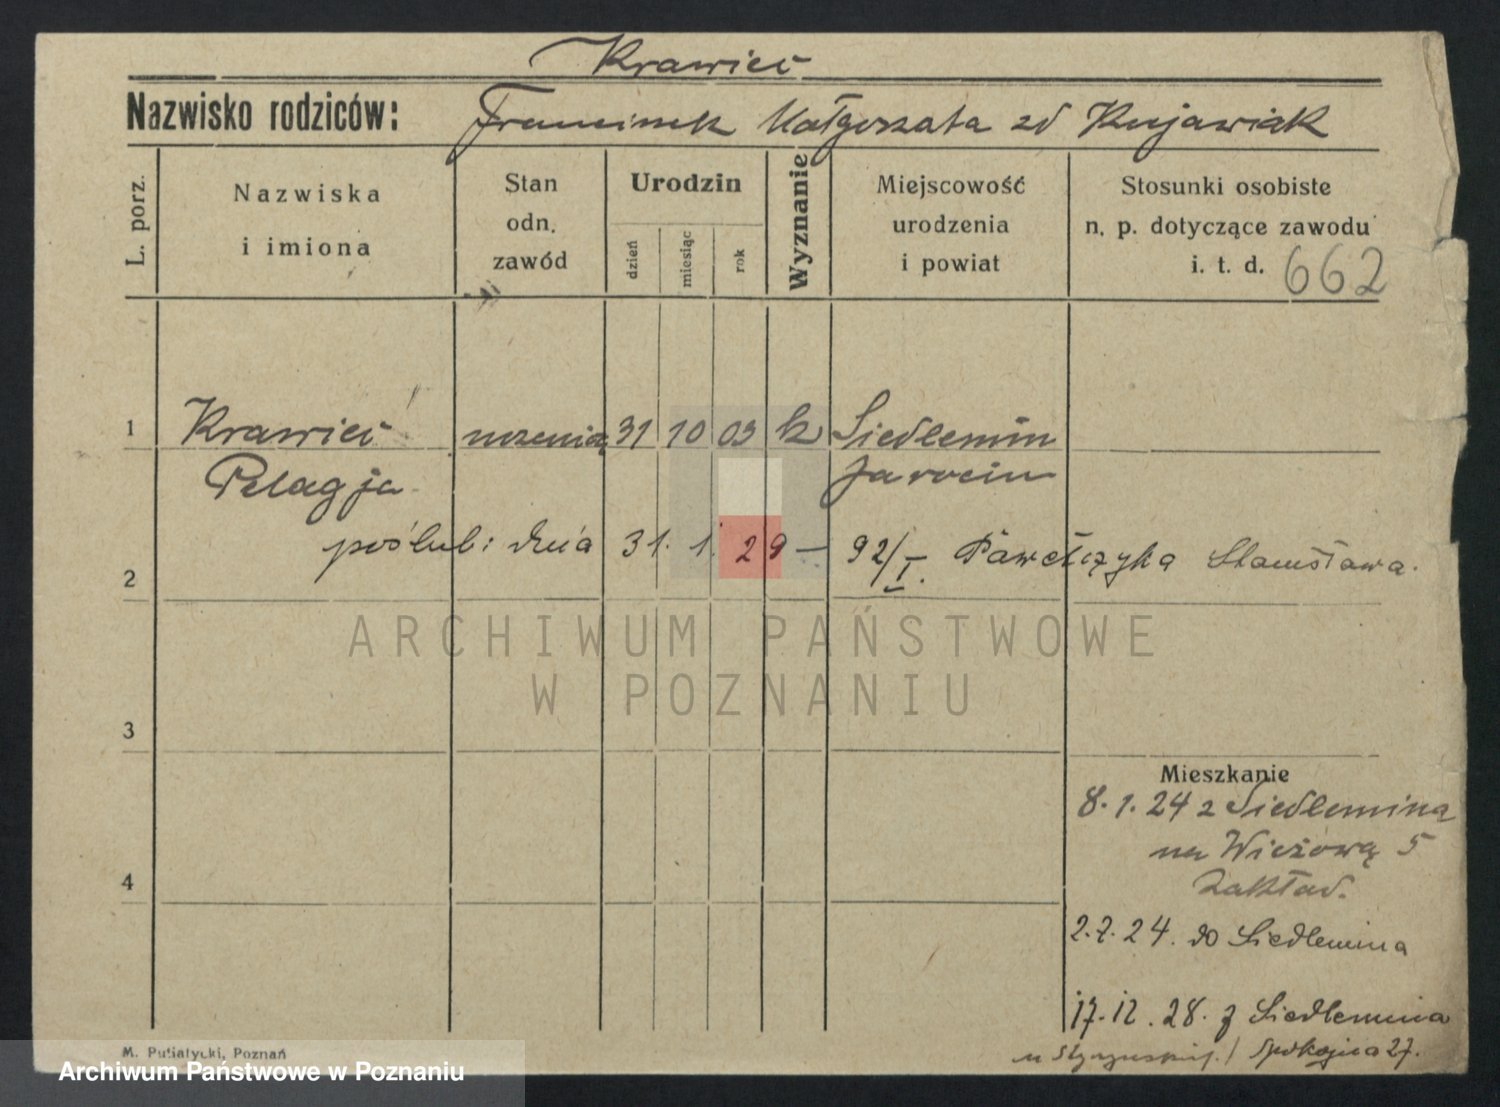 Krawiec
Nazwisko rodziców: Franciszek Małgorzata zd Kujawiak
L. porz.
Nazwiska
i imiona
Stan
odn.
zawód
Urodzin
dzień
miesiąc
rok
Wyznanie
Miejscowość
urodzenia
i powiat
Stosunki osobiste
n. p. dotyczące zawodu
i. t. d. 662
1 Krawiec uczenica 31 10 03 k Siedlemin
Pelagja Jarocin
poślub: dnia 31. 1. 29 — 92/I. Pawełczyka Stanisława.
2
ARCHIWUM PAŃSTWOWE
W POZNANIU
3
Mieszkanie
8.1.24 z Siedlemina
na Wieżową 5
Zakład.
4
2.7.24. do Siedlemina
17.12.28. z Siedlemina
u / Spokojna 27.
M. Putiatycki, Poznań
Archiwum Państwowe w Poznaniu